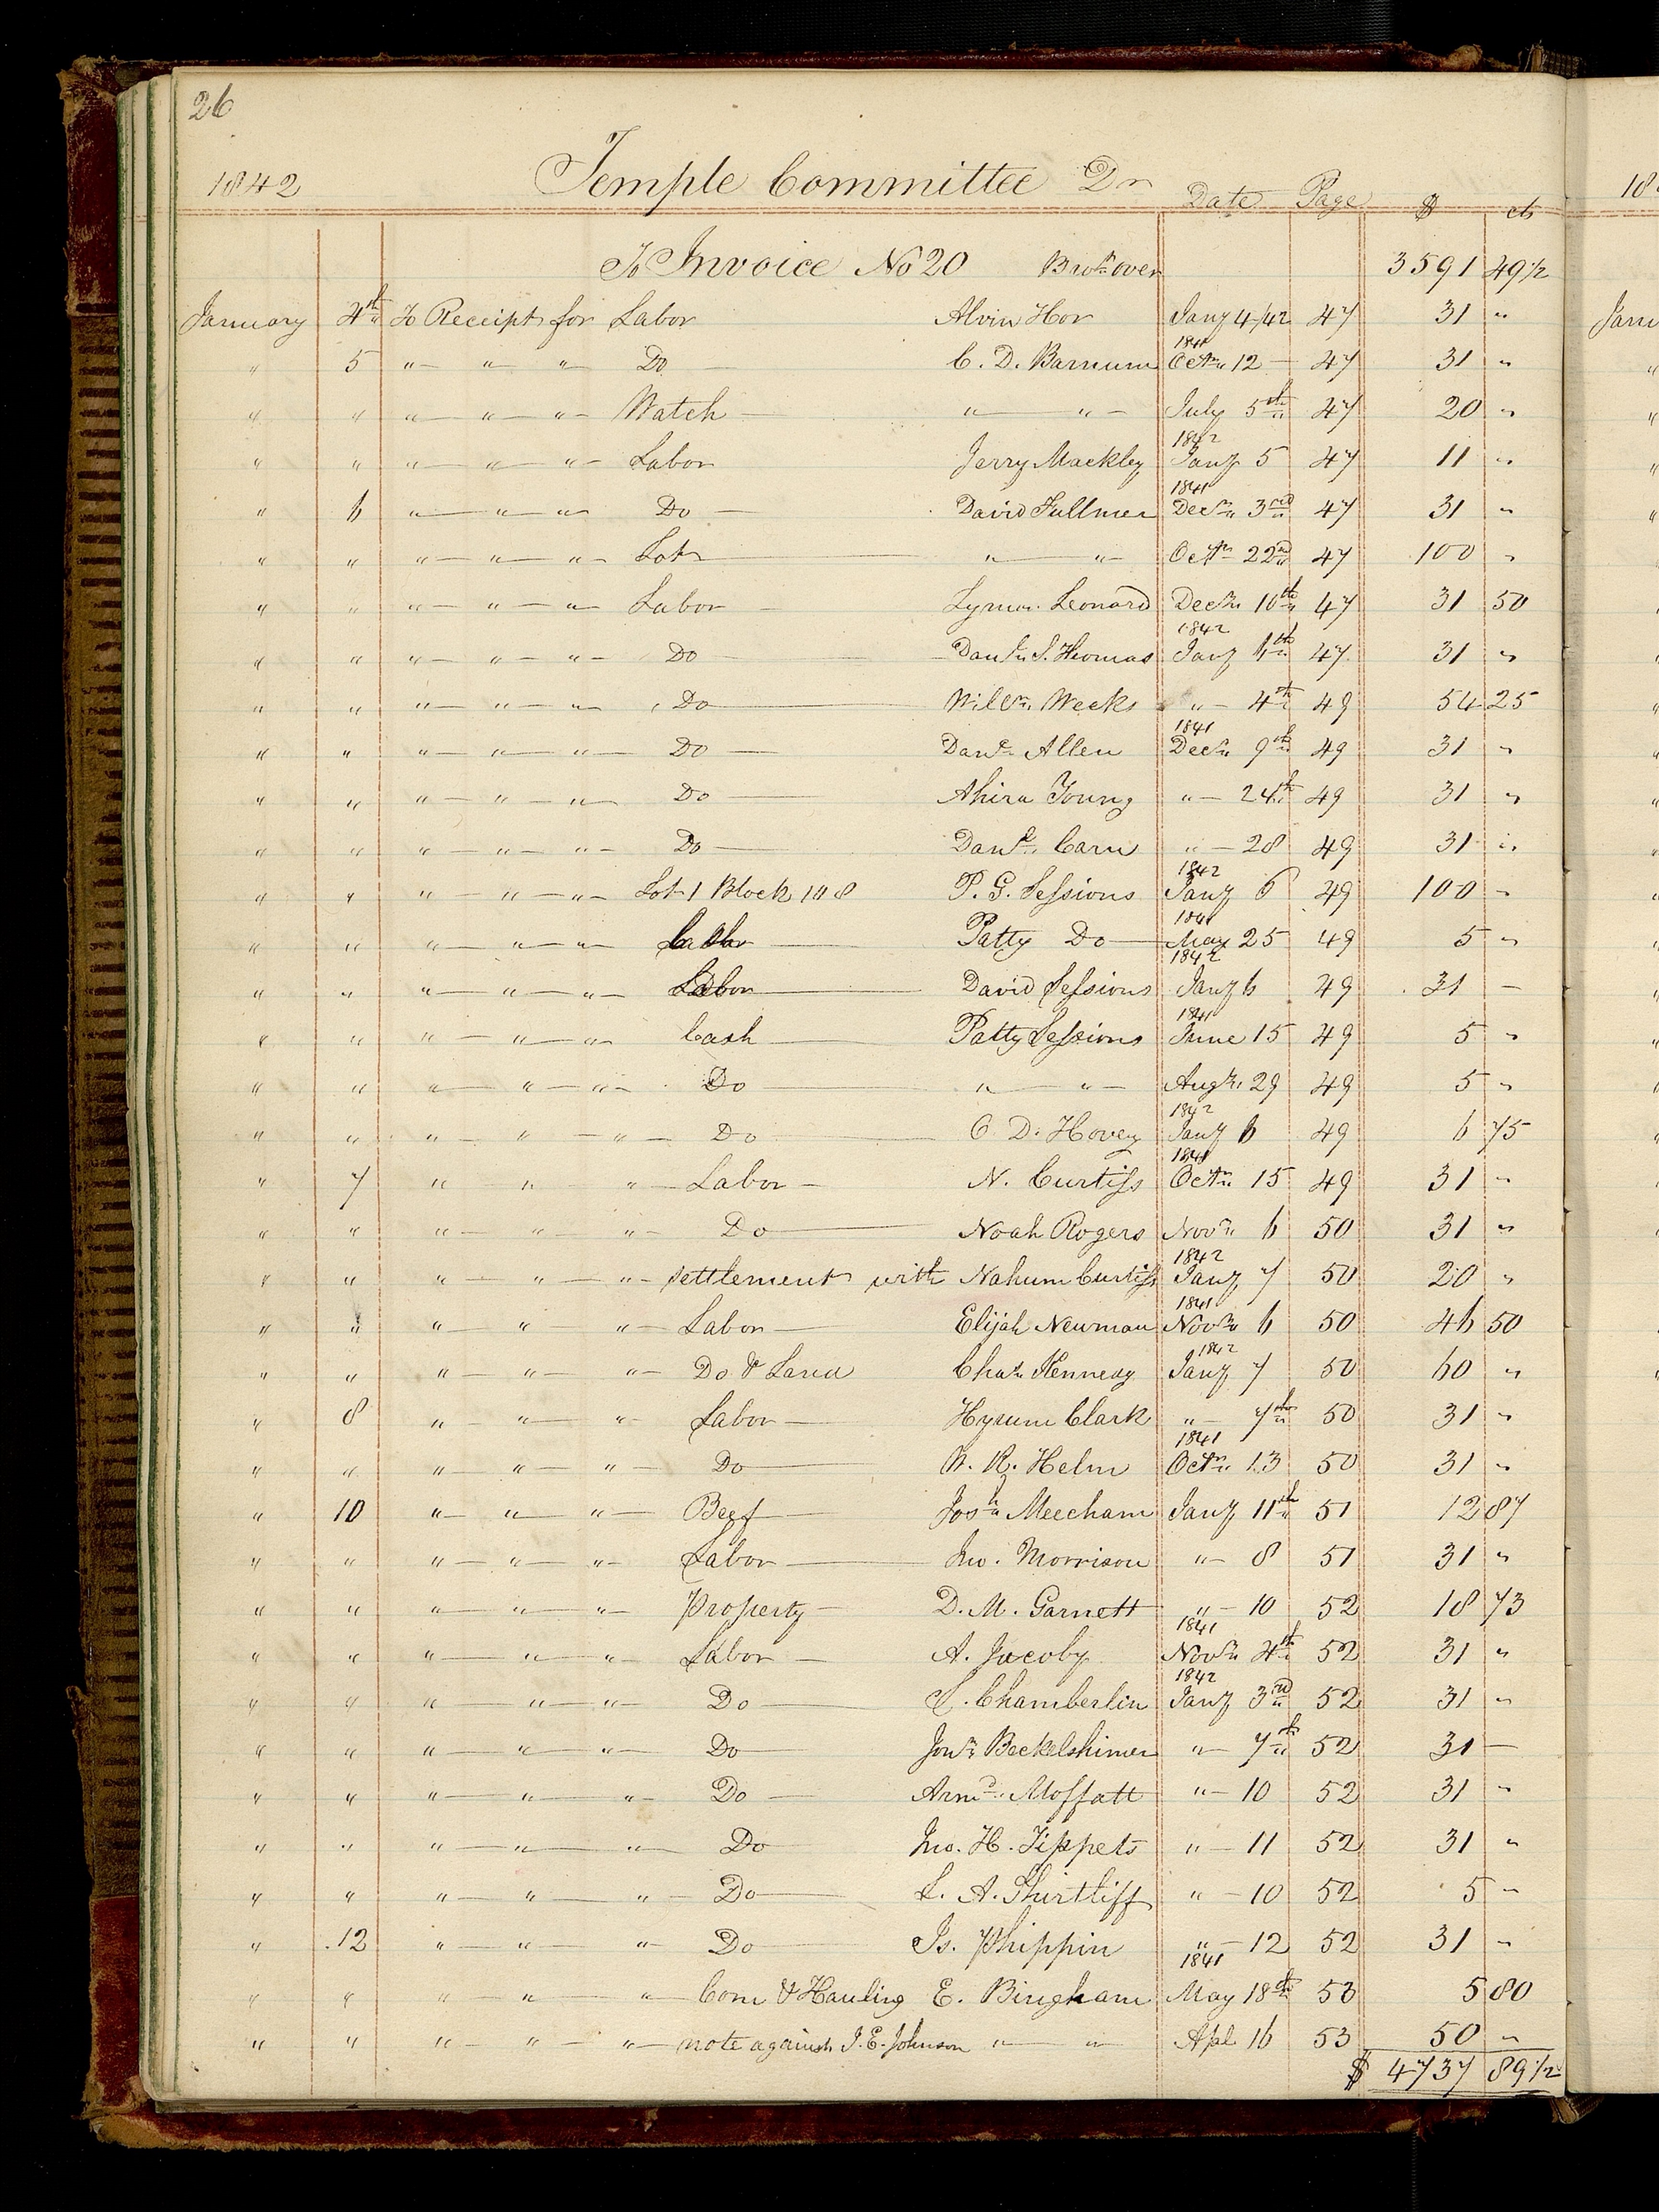 26
1842 Temple Committee Dr Date Page $ cts
To Invoice No 20 Brot over 3591 49 1/2
January 4th To Receipt for Labor Alvin Hor Jany 4/42 47 31 "
" 5 " " " Do C. D. Barnum 1841 Octr 12 47 31 "
" " " " " Watch " " July 5th 47 20 "
" " " " " Labor Jerry Mackley 1842 Jany 5 47 11 "
" 6 " " " Do David Fullmer 1841 Decr 3rd 47 31 "
" " " " " Lot " " Octr 22nd 47 100 "
" " " " " Labor Lyman Leonard Decr 16th 47 31 50
" " " " " Do Danl S. Thomas 1842 Jany 6th 47 31 "
" " " " " Do Willm Weeks " 4th 49 54 25
" " " " " Do Danl Allen 1841 Decr 9th 49 31 "
" " " " " Do Ahira Young " 24th 49 31 "
" " " " " Do Danl Carn " 28 49 31 "
" " " " " Lot 1 Block 108 P. G. Sessions 1842 Jany 6 49 100 "
" " " " " Cash Patty Do 1841 May 25 49 5 "
" " " " " Labor David Sessions 1842 Jany 6 49 31 —
" " " " " Cash Patty Sessions 1841 June 15 49 5 "
" " " " " Do " " Augt 29 49 5 "
" " " " " Do O. D. Hovey 1842 Jany 6 49 6 75
" 7 " " " Labor N. Curtiss 1841 Octr 15 49 31 "
" " " " " Do Noah Rogers Novr 6 50 31 "
" " " " " settlement with Nahum Curtiss 1842 Jany 7 50 20 "
" " " " " Labor Elijah Newman 1841 Novr 6 50 46 50
" " " " " Do & Land Chas Kennedy 1842 Jany 7 50 60 "
" 8 " " " Labor Hyrum Clark " 7th 50 31 "
" " " " " Do W. R. Helm 1841 Octr 13 50 31 "
" 10 " " " Beef Josh Meecham Jany 11th 51 12 87
" " " " " Labor Jno. Morrison " 8 51 31 "
" " " " " Property D. M. Garnett " 10 52 18 73
" " " " " Labor A. Jacoby 1841 Novr 4th 52 31 "
" " " " " Do S. Chamberlin 1842 Jany 3rd 52 31 "
" " " " " Do Jonn Beckelshimer " 7th 52 31 —
" " " " " Do Armd Moffatt " 10 52 31 "
" " " " " Do Jno. H. Tippets " 11 52 31 "
" " " " " Do L. A. Shirtliff " 10 52 5 "
" 12 " " " Do Is. Phippin " 12 52 31 "
" " " " " Corn & Hauling E. Bingham 1841 May 18th 53 5 80
" " " " " note against J. E. Johnson " " Apl 16 53 50 "
$ 4737 89 1/2